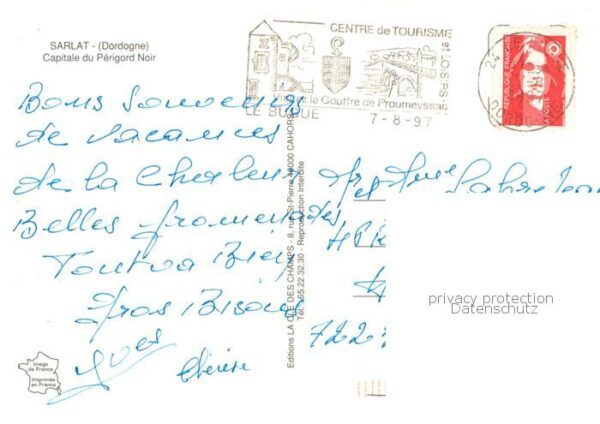 SARLAT - (Dordogne)
Capitale du Périgord Noir
CENTRE de TOURISME
& LOISIRS
le Gouffre de Proumeyssac
LE BUGUE
7-8-97
REPUBLIQUE FRANÇAISE
LA POSTE
Bons Souvenirs
de Vacances
de la Chaleur
Belles Promenades
Tout va Bien
Gros Bisous
Yves
Thérèse
Editions LA CLE DES CHAMPS - 8, rue St-Pierre 46000 CAHORS
Tél. 65.22.32.30 - Reproduction Interdite
Mr et Mme
722
privacy protection
Datenschutz
Image
de France
Imprimée
en France